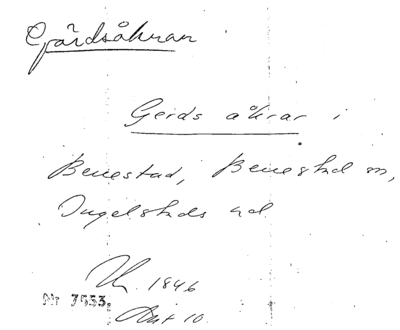 Gärdsåkran
Gerds åkrar i
Benestad, Benestad sn,
Ingelstads hd
1846
Nr 7553.
Akt 10.